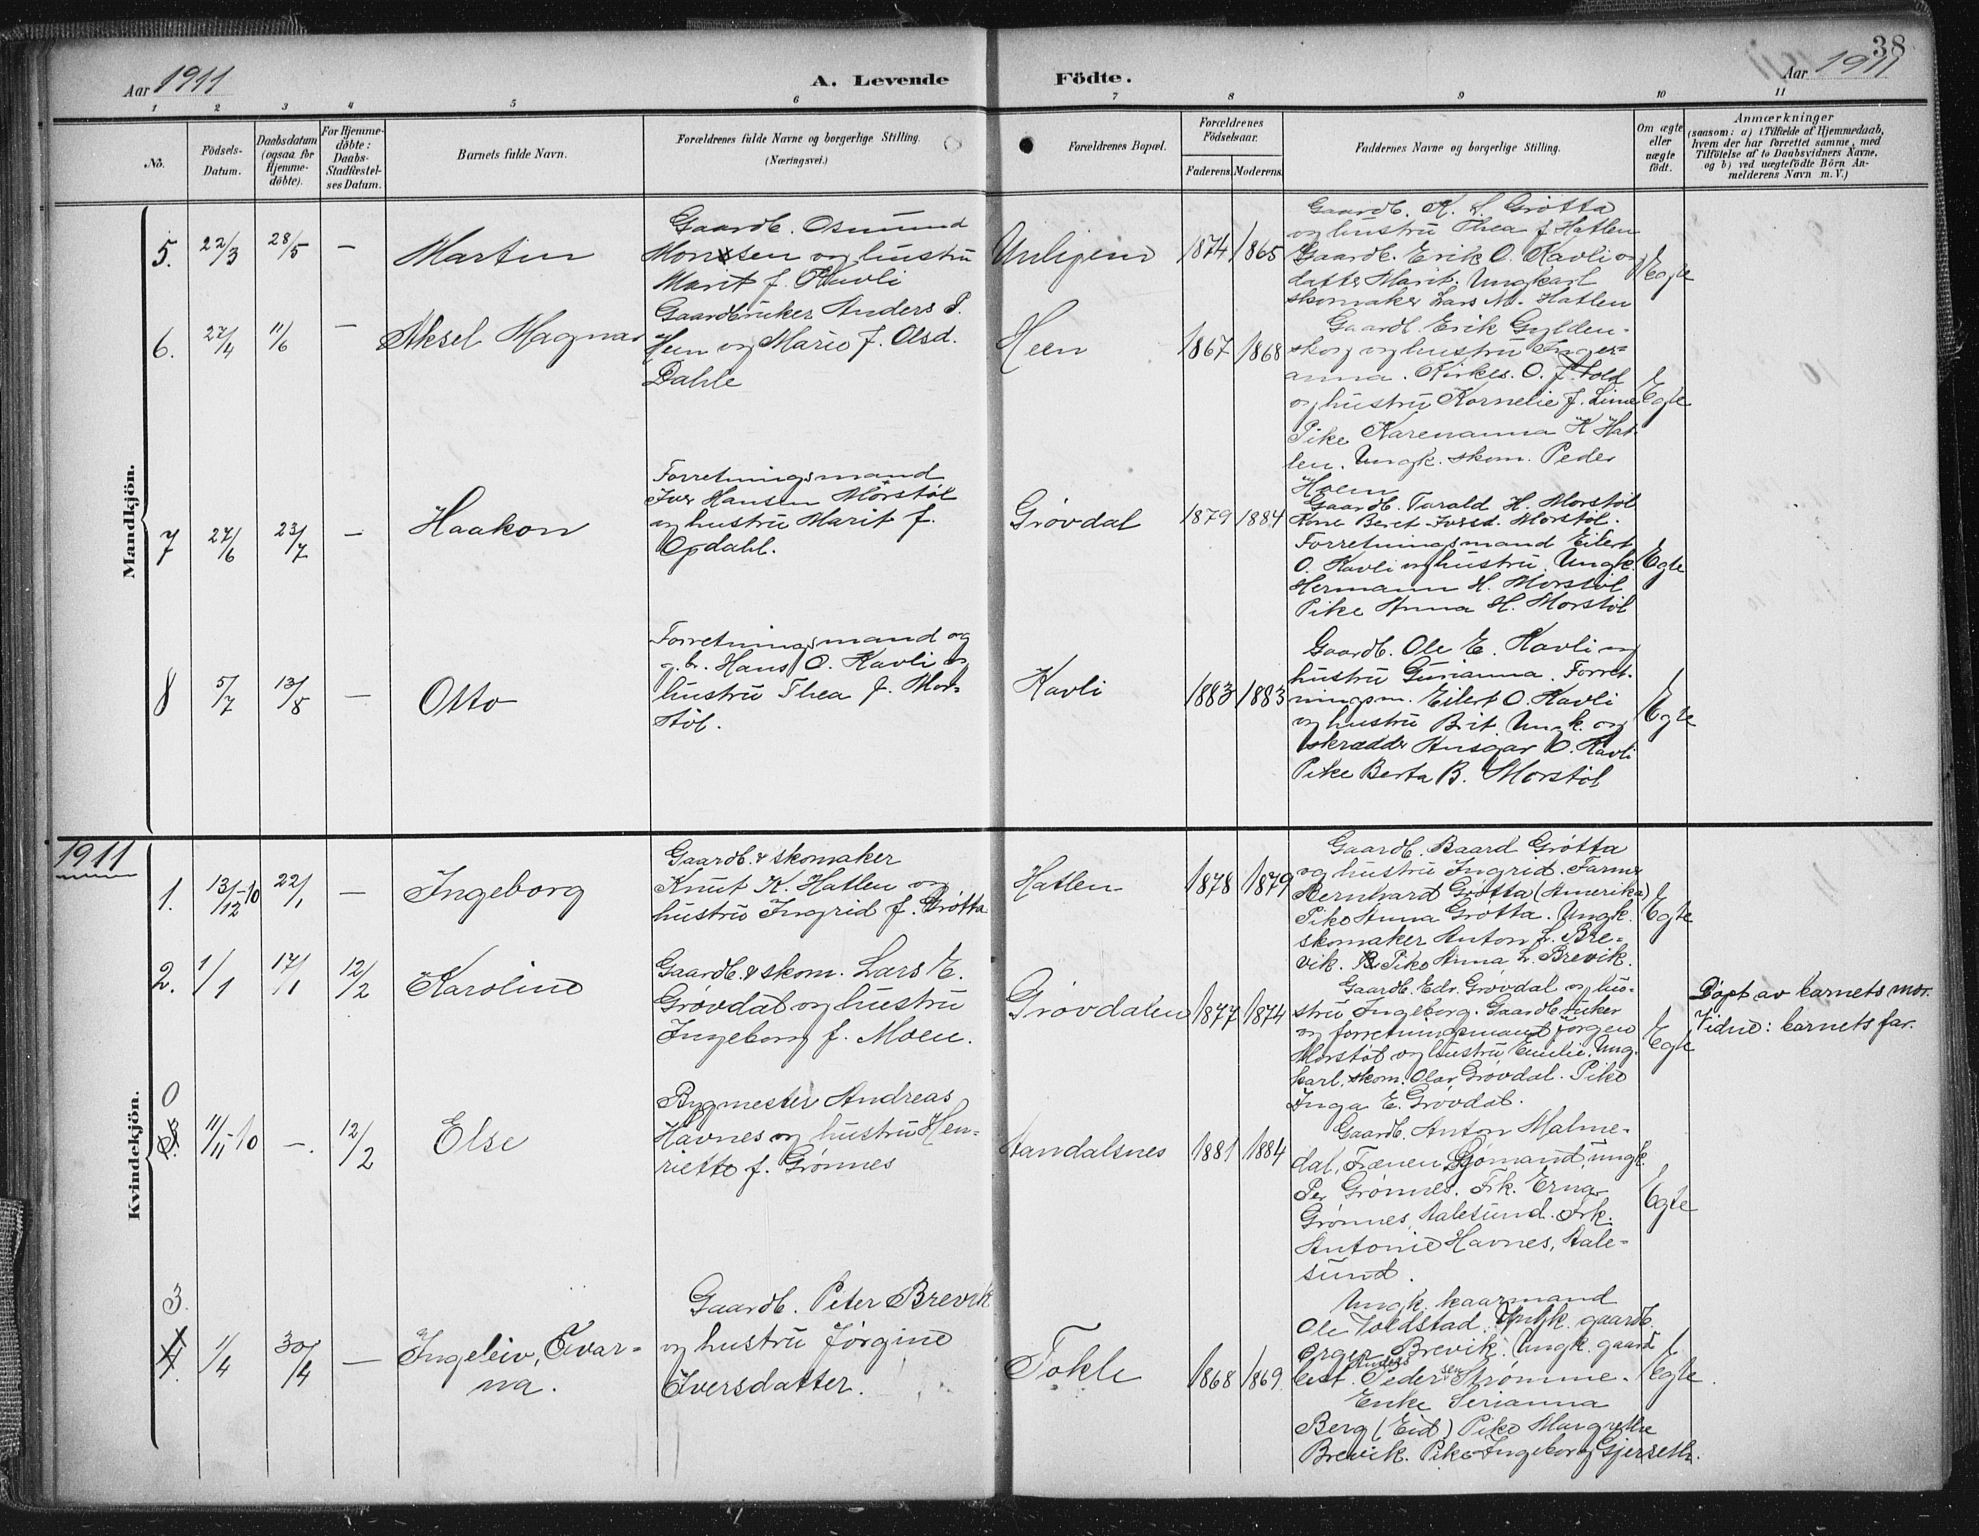 38
Aar 1911
A. Levende
Födte.
Aar 1911
1 2 3 4 5 6 7 8 9 10 11
No.
Födsels-
Datum.
Daabsdatum
(ogsaa for
Hjemme-
döbte).
For Hjemme-
döbte:
Daabs-
Stadfæstel-
ses Datum.
Barnets fulde Navn.
Forældrenes fulde Navne og borgerlige Stilling.
(Næringsvei.)
Forældrenes Bopæl.
Forældrenes
Födselsaar.
Faderens. Moderens.
Faddernes Navne og borgerlige Stilling.
Om ægte
eller
uægte
födt.
Anmærkninger
(saasom: a) i Tilfælde af Hjemmedaab,
hvem der har forrettet samme, med
Tilföielse af to Daabsvidners Navne,
og b) ved uægtefödte Börn An-
melderens Navn m. V.)
Mandkjön.
5. 22/3 28/5 — Martin
Gaardb. Osmund
Monsen og hustru
Marit f. Kavli
Unhjem 1874 1865
Gaardb. K. L. Grøtta
og hustru Thea f. Hatlen
Gaardb. Erik O. Kavli og
datter Marit. Ungkarl
skomaker Lars M. Hatlen
Egte
6. 27/4 11/6 — Aksel Magnar
Gaardbruker Anders P.
Heen og Marie f. Olsd.
Dahle
Heen 1867 1868
Gaardb. Erik Gylden-
skog og hustru Inger-
anna. Kirkes. O. J. Vold
og hustru Kornelie f. Lime
Pike Karenanna K Hat-
len. Ungk. skom. Peder
Hoem
Egte
7 27/6 23/7 — Haakon
Forretningsmand
Iver Hansen Morstøl
og hustru Marit f.
Opdahl.
Grøvdal 1879 1884
Gaardb. Tarald H. Morstøl
Kone Beret Iversd. Morstøl.
Forretningsmand Eilert
O. Kavli og hustru. Ungk.
Hermann H. Morstøl
Pike Anna H. Morstøl
Egte
8 5/7 13/8 — Otto
Forretningsmand og
g.br. Hans O. Kavli og
hustru Thea f. Mor-
støl.
Kavli 1883 1883
Gaardb. Ole E. Kavli og
hustru Gurianna. Forret-
ningsm. Eilert O. Kavli
og hustru Brit. Ungk. og
skrædder Ansgar O. Kavli
Pike Berta B. Morstøl
Egte
1911
Kvindekjön.
1. 13/12-10 22/1 — Ingeborg
Gaardb. & skomaker
Knut K. Hatlen og
hustru Ingrid f. Grøtta
Hatlen 1878 1879
Gaardb. Baard Grøtta
og hustru Ingrid. Farmer
Bernhard Grøtta (Amerika)
Pike Anna Grøtta. Ungk.
skomaker Anton L. Bre-
vik. Pike Anna L. Brevik.
Egte
2. 1/1 17/1 12/2 Karoline
Gaardb & skom. Lars E.
Grøvdal og hustru
Ingeborg f. Moen.
Grøvdalen 1877 1874
Gaardb. Edv. Grøvdal og hu-
stru Ingeborg. Gaardbruker
og forretningsmand Jørgen
Morstøl og hustru Emilie. Ung-
karl, skom. Olav Grøvdal. Pike
Inga E. Grøvdal.
Egte
Døpt av barnets mor.
Vidne: barnets far.
0
3. 11/11-10 —. 12/2 Else
Bygmester Andreas
Havnes og hustru Hen-
riette f. Grønnes
Aandalsnes 1881 1884
Gaardb. Anton Malme-
dal, Frænen, Sjømand, ungk.
Per Grønnes. Frk. Erna
Grønnes, Aalesund. Frk.
Antonie Havnes, Aale-
sund.
Egte
3.
4. 1/4 30/4 — Ingeleiv, Ovar-
na.
Gaardb. Peter Brevik
og hustru Jørgine
Iversdatter.
Tokle 1868 1869
Ungk. kaarmand
Ole Voldstad. Ungk. gaardb.
Brevik. Ungk. gaard
best. Anders Pedersen Strømme.
Enke Serianna
Berg (Eid) Pike Margrethe
Brevik. Pike Ingeborg Gjerseth.
Egte.